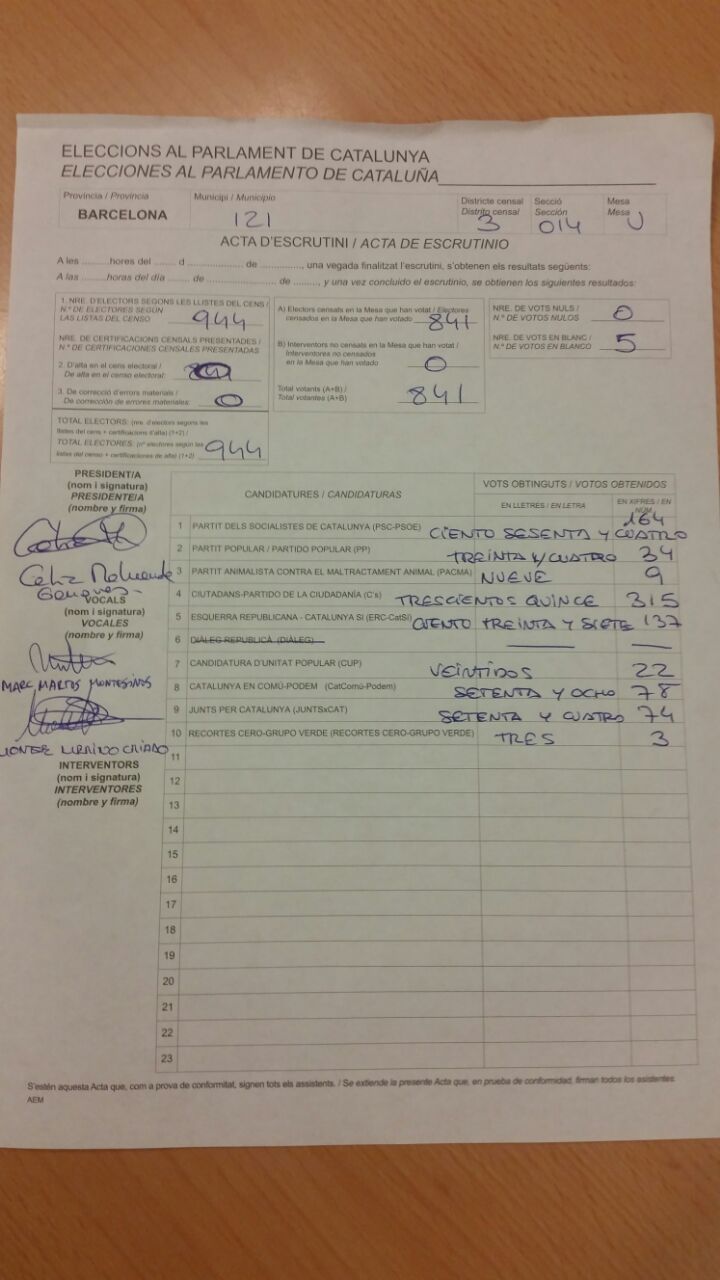 ELECCIONS AL PARLAMENT DE CATALUNYA
ELECCIONES AL PARLAMENTO DE CATALUÑA
Província / Provincia
BARCELONA
Municipi / Municipio
121
Districte censal
Distrito censal
3
Secció
Sección
014
Mesa
Mesa
U
ACTA D'ESCRUTINI / ACTA DE ESCRUTINIO
A les ..........hores del ....... d .................... de .............., una vegada finalitzat l'escrutini, s'obtenen els resultats següents:
A las .........horas del día ....... de .................... de ........, y una vez concluido el escrutinio, se obtienen los siguientes resultados:
1. NRE. D'ELECTORS SEGONS LES LLISTES DEL CENS /
N.º DE ELECTORES SEGÚN
LAS LISTAS DEL CENSO 944
NRE. DE CERTIFICACIONS CENSALS PRESENTADES /
N.º DE CERTIFICACIONES CENSALES PRESENTADAS
2. D'alta en el cens electoral /
De alta en el censo electoral:
3. De correcció d'errors materials /
De corrección de errores materiales: 0
TOTAL ELECTORS: (nre. d'electors segons les
llistes del cens + certificacions d'alta) (1+2) /
TOTAL ELECTORES: (nº electores según las
listas del censo + certificaciones de alta) (1+2) 944
A) Electors censats en la Mesa que han votat / Electores
censados en la Mesa que han votado 841
B) Interventors no censats en la Mesa que han votat /
Interventores no censados
en la Mesa que han votado 0
Total votants (A+B) /
Total votantes (A+B) 841
NRE. DE VOTS NULS /
N.º DE VOTOS NULOS 0
NRE. DE VOTS EN BLANC /
N.º DE VOTOS EN BLANCO 5
PRESIDENT/A
(nom i signatura)
PRESIDENTE/A
(nombre y firma)
Celia
VOCALS
(nom i signatura)
VOCALES
(nombre y firma)
MARC MARTOS MONTESINOS
MONTSE MERINO CRIADO
INTERVENTORS
(nom i signatura)
INTERVENTORES
(nombre y firma)
CANDIDATURES / CANDIDATURAS
VOTS OBTINGUTS / VOTOS OBTENIDOS
EN LLETRES / EN LETRA
EN XIFRES / EN NÚM.
1 PARTIT DELS SOCIALISTES DE CATALUNYA (PSC-PSOE) CIENTO SESENTA Y CUATRO 164
2 PARTIT POPULAR / PARTIDO POPULAR (PP) TREINTA Y CUATRO 34
3 PARTIT ANIMALISTA CONTRA EL MALTRACTAMENT ANIMAL (PACMA) NUEVE 9
4 CIUTADANS-PARTIDO DE LA CIUDADANÍA (C's) TRESCIENTOS QUINCE 315
5 ESQUERRA REPUBLICANA - CATALUNYA SÍ (ERC-CatSí) CIENTO TREINTA Y SIETE 137
6 DIÀLEG REPUBLICÀ (DIÀLEG)
7 CANDIDATURA D'UNITAT POPULAR (CUP) VEINTIDOS 22
8 CATALUNYA EN COMÚ-PODEM (CatComú-Podem) SETENTA Y OCHO 78
9 JUNTS PER CATALUNYA (JUNTSxCAT) SETENTA Y CUATRO 74
10 RECORTES CERO-GRUPO VERDE (RECORTES CERO-GRUPO VERDE) TRES 3
11
12
13
14
15
16
17
18
19
20
21
22
23
S'estén aquesta Acta que, com a prova de conformitat, signen tots els assistents. / Se extiende la presente Acta que, en prueba de conformidad, firman todos los asistentes.
AEM